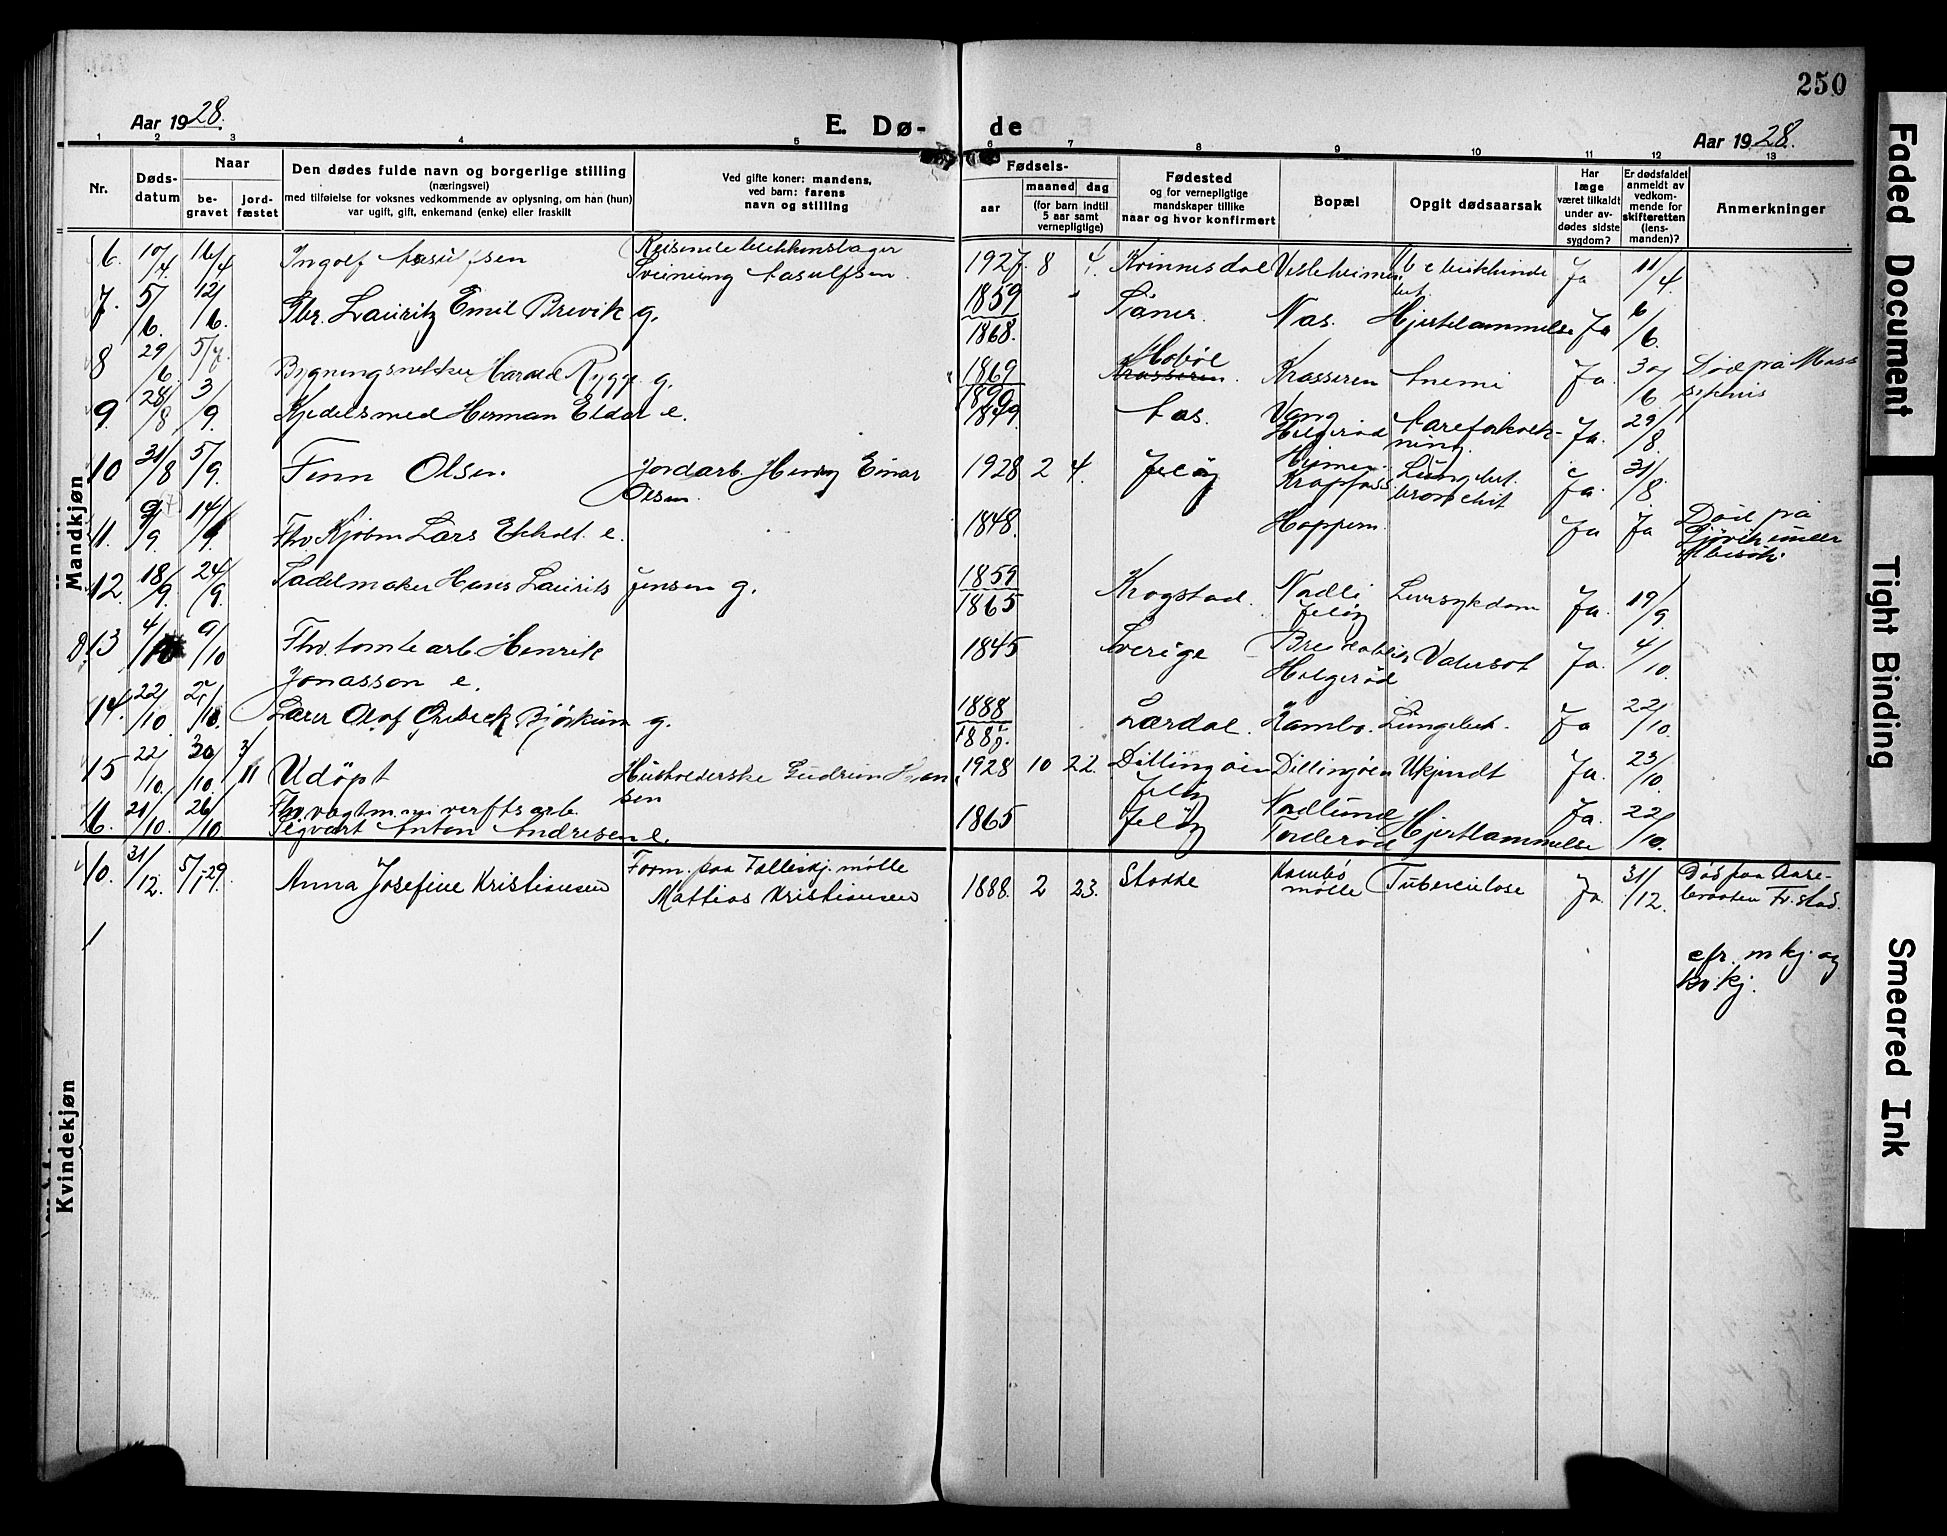 250
Aar 1928.
E. Dø-
de
Aar 1928.
1 2 3 4 5 6 7 8 9 10 11 12 13
Nr.
Døds-
datum
Naar
be-
gravet
jord-
fæstet
Den dødes fulde navn og borgerlige stilling
(næringsvei)
med tilføielse for voksnes vedkommende av oplysning, om han (hun)
var ugift, gift, enkemand (enke) eller fraskilt
Ved gifte koner: mandens,
ved barn: farens
navn og stilling
Fødsels-
aar
maaned
dag
(for barn indtil
5 aar samt
vernepligtige)
Fødested
og for vernepligtige
mandskaper tillike
naar og hvor konfirmert
Bopæl
Opgit dødsaarsak
Har
læge
været tilkaldt
under av-
dødes sidste
sygdom?
Er dødsfaldet
anmeldt av
vedkom-
mende for
skifteretten
(lens-
manden)?
Anmerkninger
Mandkjøn
6. 10/4. 16/4 Ingolf Aasulfsen Reisende blikkenslager
Sveinung Aasulfsen. 1927. 8 4. Kvinnesdal Ja 11/4.
7. 5/6. 12/6. Gbr. Lauritz Emil Brevik g. 1859
1868. Saner. Nas. Hjertelammelse Ja 6/6.
8 29/6 5/7. Bygningsnekker Harald Rygge g. 1869 Hobøl
Krosseren. Krosseren Anemi Ja. 30/6 Død på Moss
sykehus
9. 28/8 3/9. Kjedelsmed Herman Eldar e. 1879. Aas. Vang
Helgerød Aareforkalk-
ning. Ja. 29/8.
10 31/8 5/9. Finn Olsen. Jordarb. Henry Einar
Olsen. 1928 2 4. Jeløy Krapfoss Lungebet.
bronchit Ja. 31/8.
11. 9/9. 14/9 Fhv. Kjøbm Lars Ekholt. e. 1848. Hoppern. Ja Ja Død på
Gjøvik under
et besøk.
12. 18/9. 24/9. Sadelmaker Hans Laurits Jensen g. 1859
1865 Krogstad. Nadli
Jeløy Leversykdom Ja. 19/9.
D. 13 4/10 9/10 Fhv. tomtearb. Henrik
Jonasson e. 1845 Sverige
Helgerød Vatersot Ja. 4/10.
14. 22/10 /10. Lærer Olaf Bjørkum g. 1888 Lærdal. Kambo. Lungebet. Ja 22/10.
15 22/10. 30/10. 3/11 Udøpt Husholderske Gudrun Han
sen 1928 10 22. Dillingøen
Jeløy Dillingøen Ukjendt Ja. 23/10.
16. 21/10. 26/10 Fhv. vagtm. verftsarb.
Sigvart Anton Andresen e. 1865 Jeløy Nordlund
Torderød Hjertlammelse Ja. 22/10.
Kvindekjøn
10. 31/12. 5/1-29. Anna Josefine Kristiansen Form. paa Tolleskj. mølle
Mattias Kristiansen 1888. 2 23. Stokke Kambo
mølle Tuberculose Ja. 31/12. Død paa Aare-
braaten Fr.stad.
1
cfr. m kj. og
kv kj.
Faded Document
Tight Binding
Smeared Ink